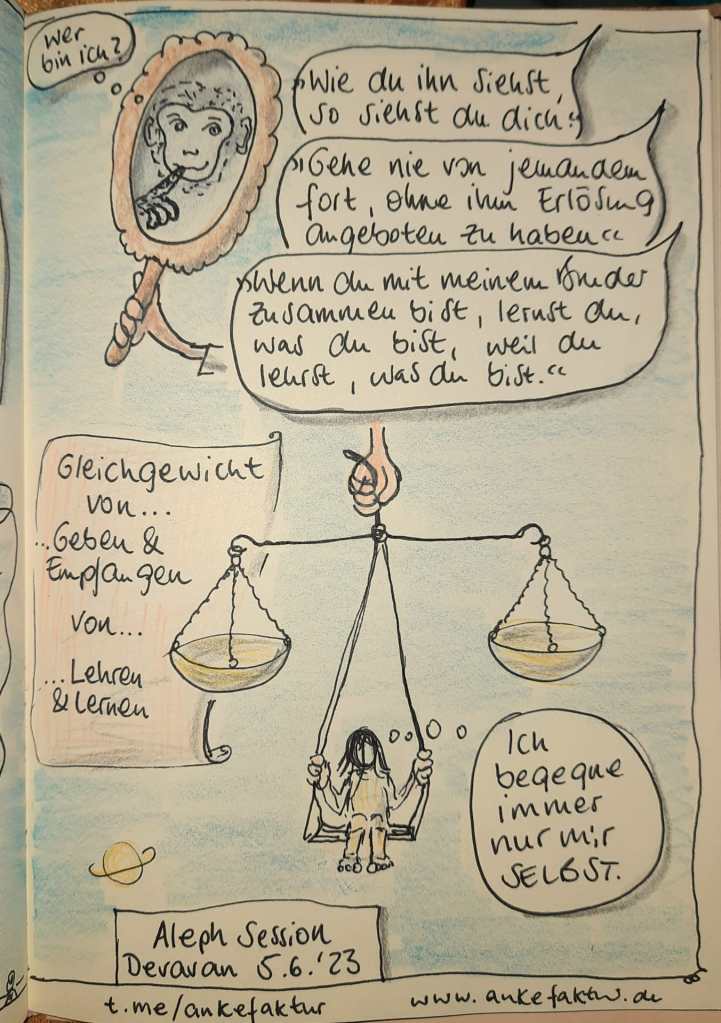 wer
bin ich?
»Wie du ihn siehst,
so siehst du dich.«
»Gehe nie von jemandem
fort, ohne ihm Erlösung
angeboten zu haben«
»Wenn du mit meinem Bruder
zusammen bist, lernst du,
was du bist, weil du
lehrst, was du bist.«
Gleichgewicht
von...
...Geben &
Empfangen
von...
...Lehren
& lernen
Ich
begegne
immer
nur mir
SELBST.
Aleph Session
Devavan 5.6.'23
t.me/ankefaktur
www.ankefaktur.de